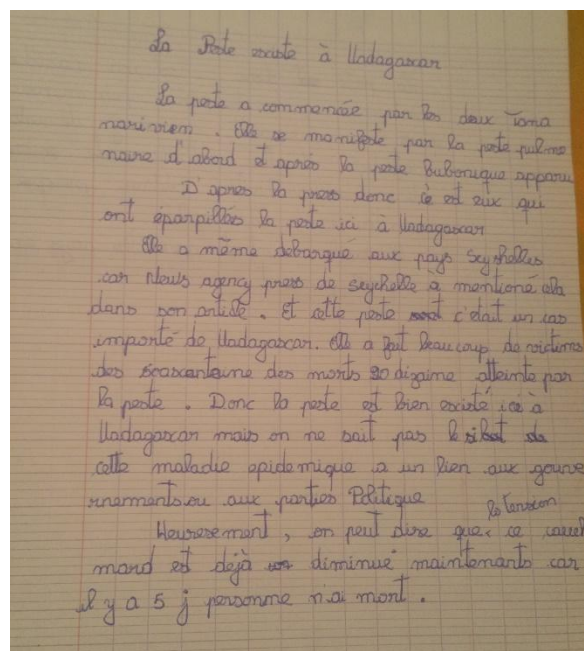 La Peste existe à Madagascar
La peste a commencée par les deux Tama
nariviem. Elle se manifeste par la peste pulmo
naire d'abord et après la peste Bubonique apparu
D'apres la press donc ce est eux qui
ont éparpillés la peste ici à Madagascar
Elle a même débarqué aux pays Seyshelles
car News agency press de seychelle à mentioné cela
dans son article. Et cette peste c'était un cas
importé de Madagascar. Elle a fait beaucoup de victimes
des soixantaine des morts 20 dizaine atteinte par
la peste. Donc la peste est bien existé ici à
Madagascar mais on ne sait pas le si
cette maladie epidemique a un lien aux gouve
rnements ou aux parties Politique
la tension
Heuresement, on peut dire que ce
mard est dejà diminué maintenants car
il y a 5 j personne n'ai mort.